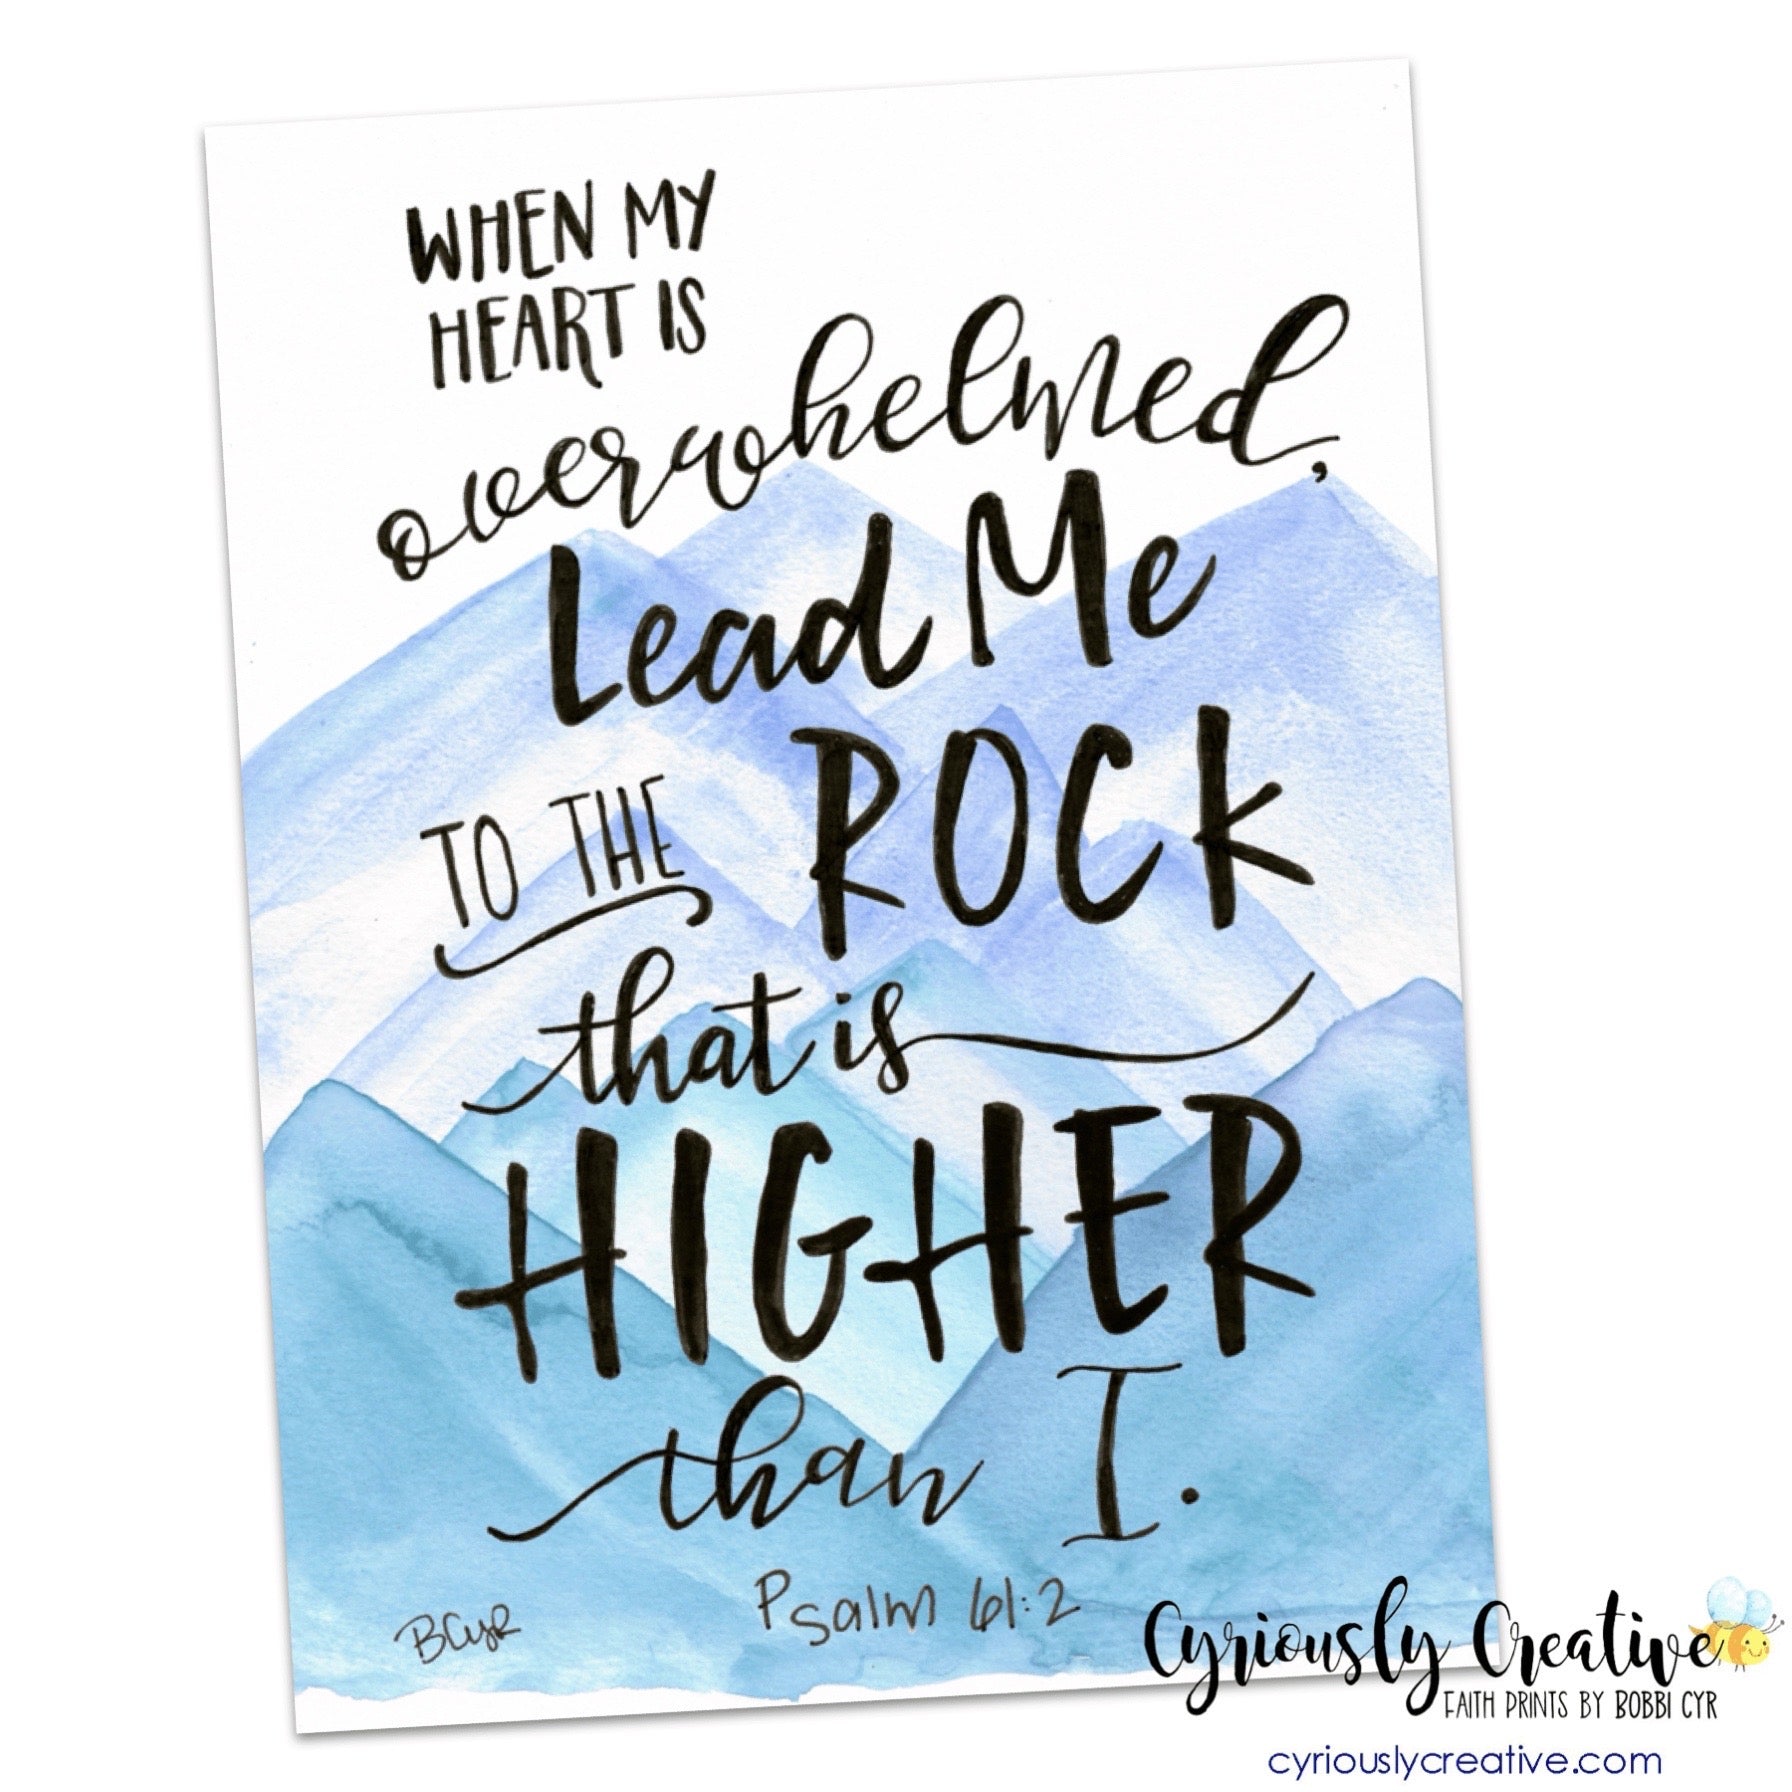 WHEN MY
HEART IS
overwhelmed,
Lead Me
TO THE ROCK
that is
HIGHER
than I.
Psalm 61:2
BCyR
Cyriously Creative
FAITH PRINTS BY BOBBI CYR
cyriouslycreative.com